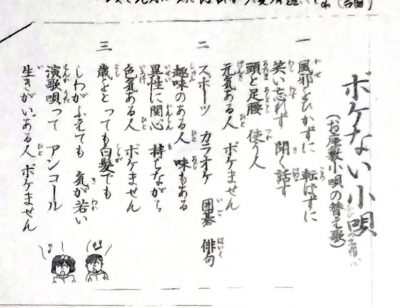 ボケない小唄
（お座敷小唄の替え歌）
一
風邪をひかずに 転ばずに
笑い忘れず 聞く話す
頭と足腰 使う人
元気ある人 ボケません
二
スポーツ カラオケ 囲碁 俳句
趣味のある人 味もある
異性に関心 持ちながら
色気ある人 ボケません
三
歳をとっても白髪でも
しわがふえても 気が若い
演歌唄って アンコール
生きがいある人 ボケません